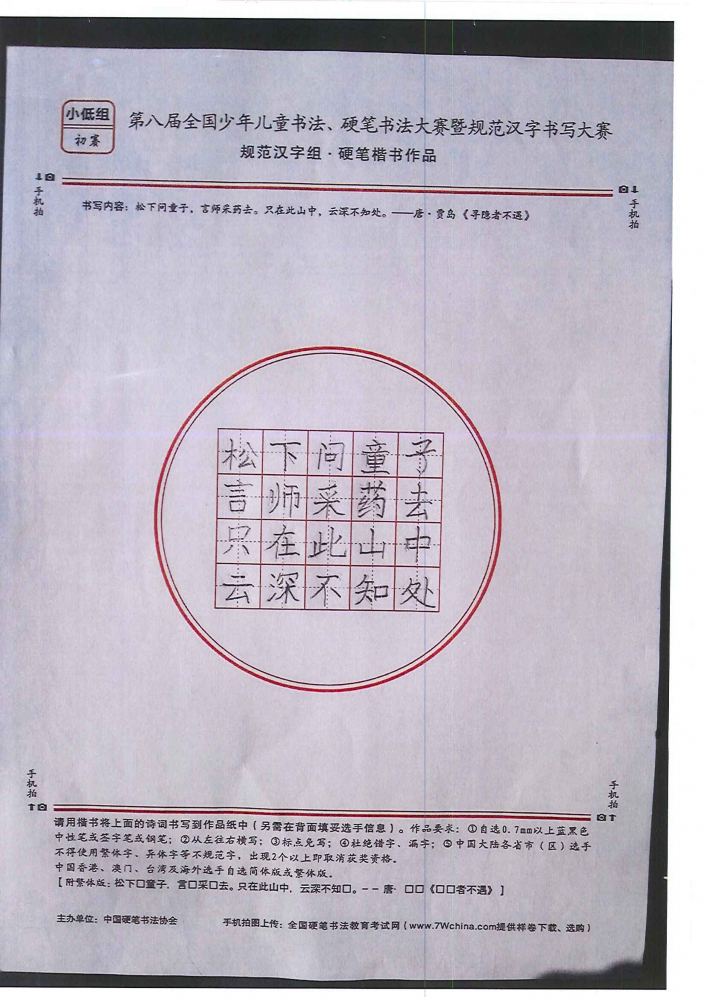 小低组
初赛
第八届全国少年儿童书法、硬笔书法大赛暨规范汉字书写大赛
规范汉字组·硬笔楷书作品
手机拍
手机拍
书写内容：松下问童子，言师采药去。只在此山中，云深不知处。——唐·贾岛《寻隐者不遇》
松下问童子
言师采药去
只在此山中
云深不知处
手机拍
手机拍
请用楷书将上面的诗词书写到作品纸中（另需在背面填妥选手信息）。作品要求：①自选0.7mm以上蓝黑色
中性笔或签字笔或钢笔；②从左往右横写；③标点免写；④杜绝错字、漏字；⑤中国大陆各省市（区）选手
不得使用繁体字、异体字等不规范字，出现2个以上即取消获奖资格。
中国香港、澳门、台湾及海外选手自选简体版或繁体版。
【附繁体版：松下□童子，言□采□去。只在此山中，云深不知□。－－唐·□□《□□者不遇》】
主办单位：中国硬笔书法协会
手机拍图上传：全国硬笔书法教育考试网（www.7Wchina.com提供样卷下载、选购）